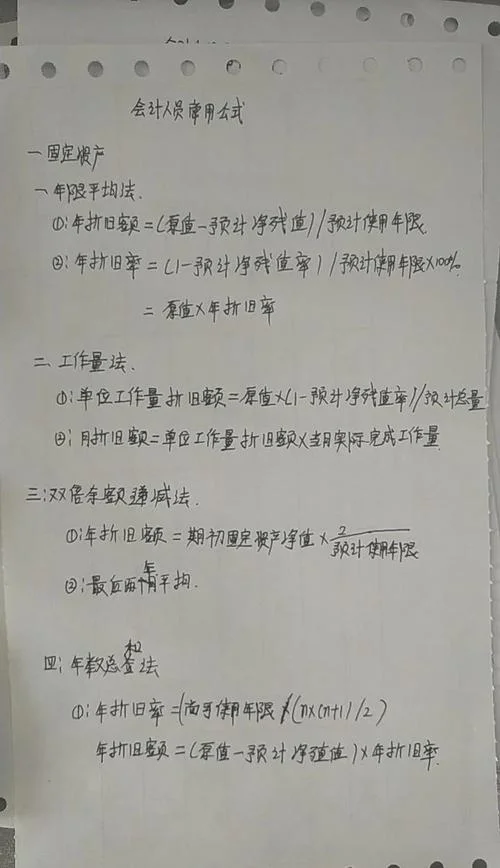 会计人员常用公式
一固定资产
一年限平均法.
①:年折旧额=(原值-预计净残值)/预计使用年限.
②:年折旧率=(1-预计净残值率)/预计使用年限×100%.
=原值×年折旧率
二.工作量法.
①:单位工作量折旧额=原值×(1-预计净残值率)/预计总量
②:月折旧额=单位工作量折旧额×当月实际完成工作量.
三:双倍余额递减法.
①:年折旧额=期初固定资产净值×2/预计使用年限
②:最后两年平均.
四:年数总和法
①:年折旧率=(尚可使用年限/(n×(n+1)/2)
年折旧额=(原值-预计净殖值)×年折旧率.